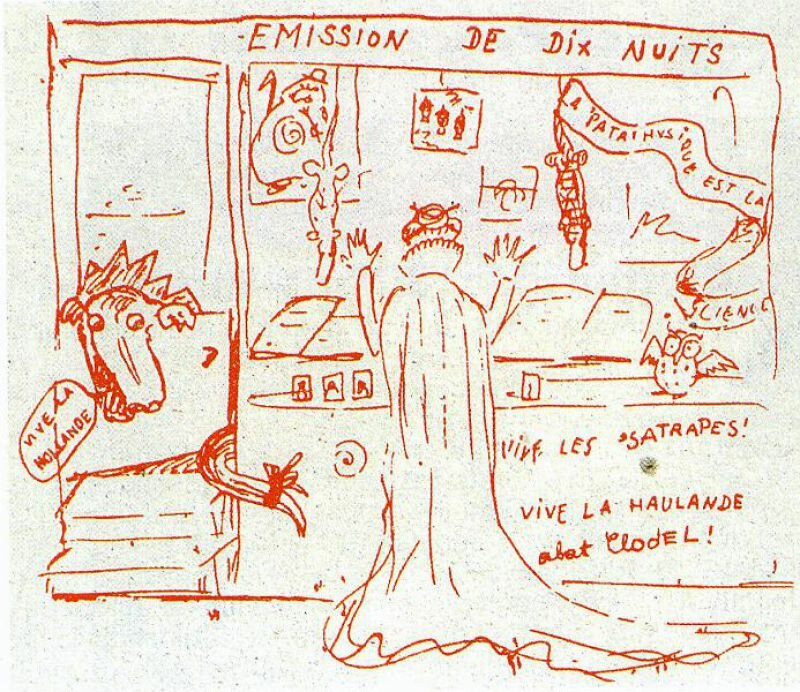 EMISSION DE DIX NUITS
LA PATAPHYSIQUE EST LA
SCIENCE
VIVE LA
HOLLANDE
VIVE LES SATRAPES!
VIVE LA HAULANDE
abat ClodEL!